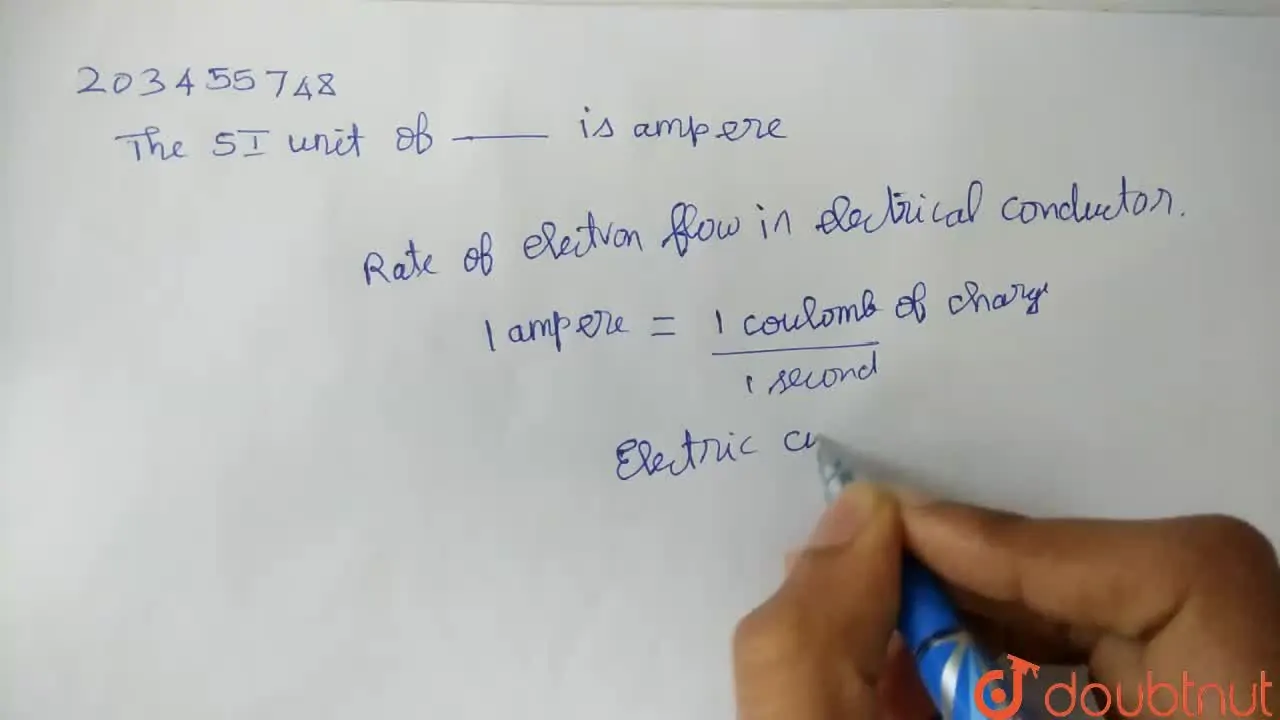 203455748
The SI unit of —— is ampere
Rate of electron flow in electrical conductor.
1 ampere = 1 coulomb of charge
1 second
Electric cu
doubtnut